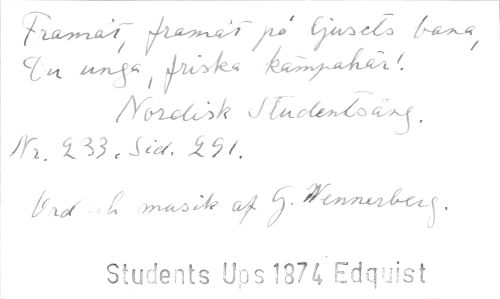 Framåt, framåt på ljusets bana,
Du unga, friska kämpahär!
Nordisk Studentsång.
Nr. 233. Sid. 291.
Ord och musik af G. Wennerberg.
Students Ups 1874 Edquist